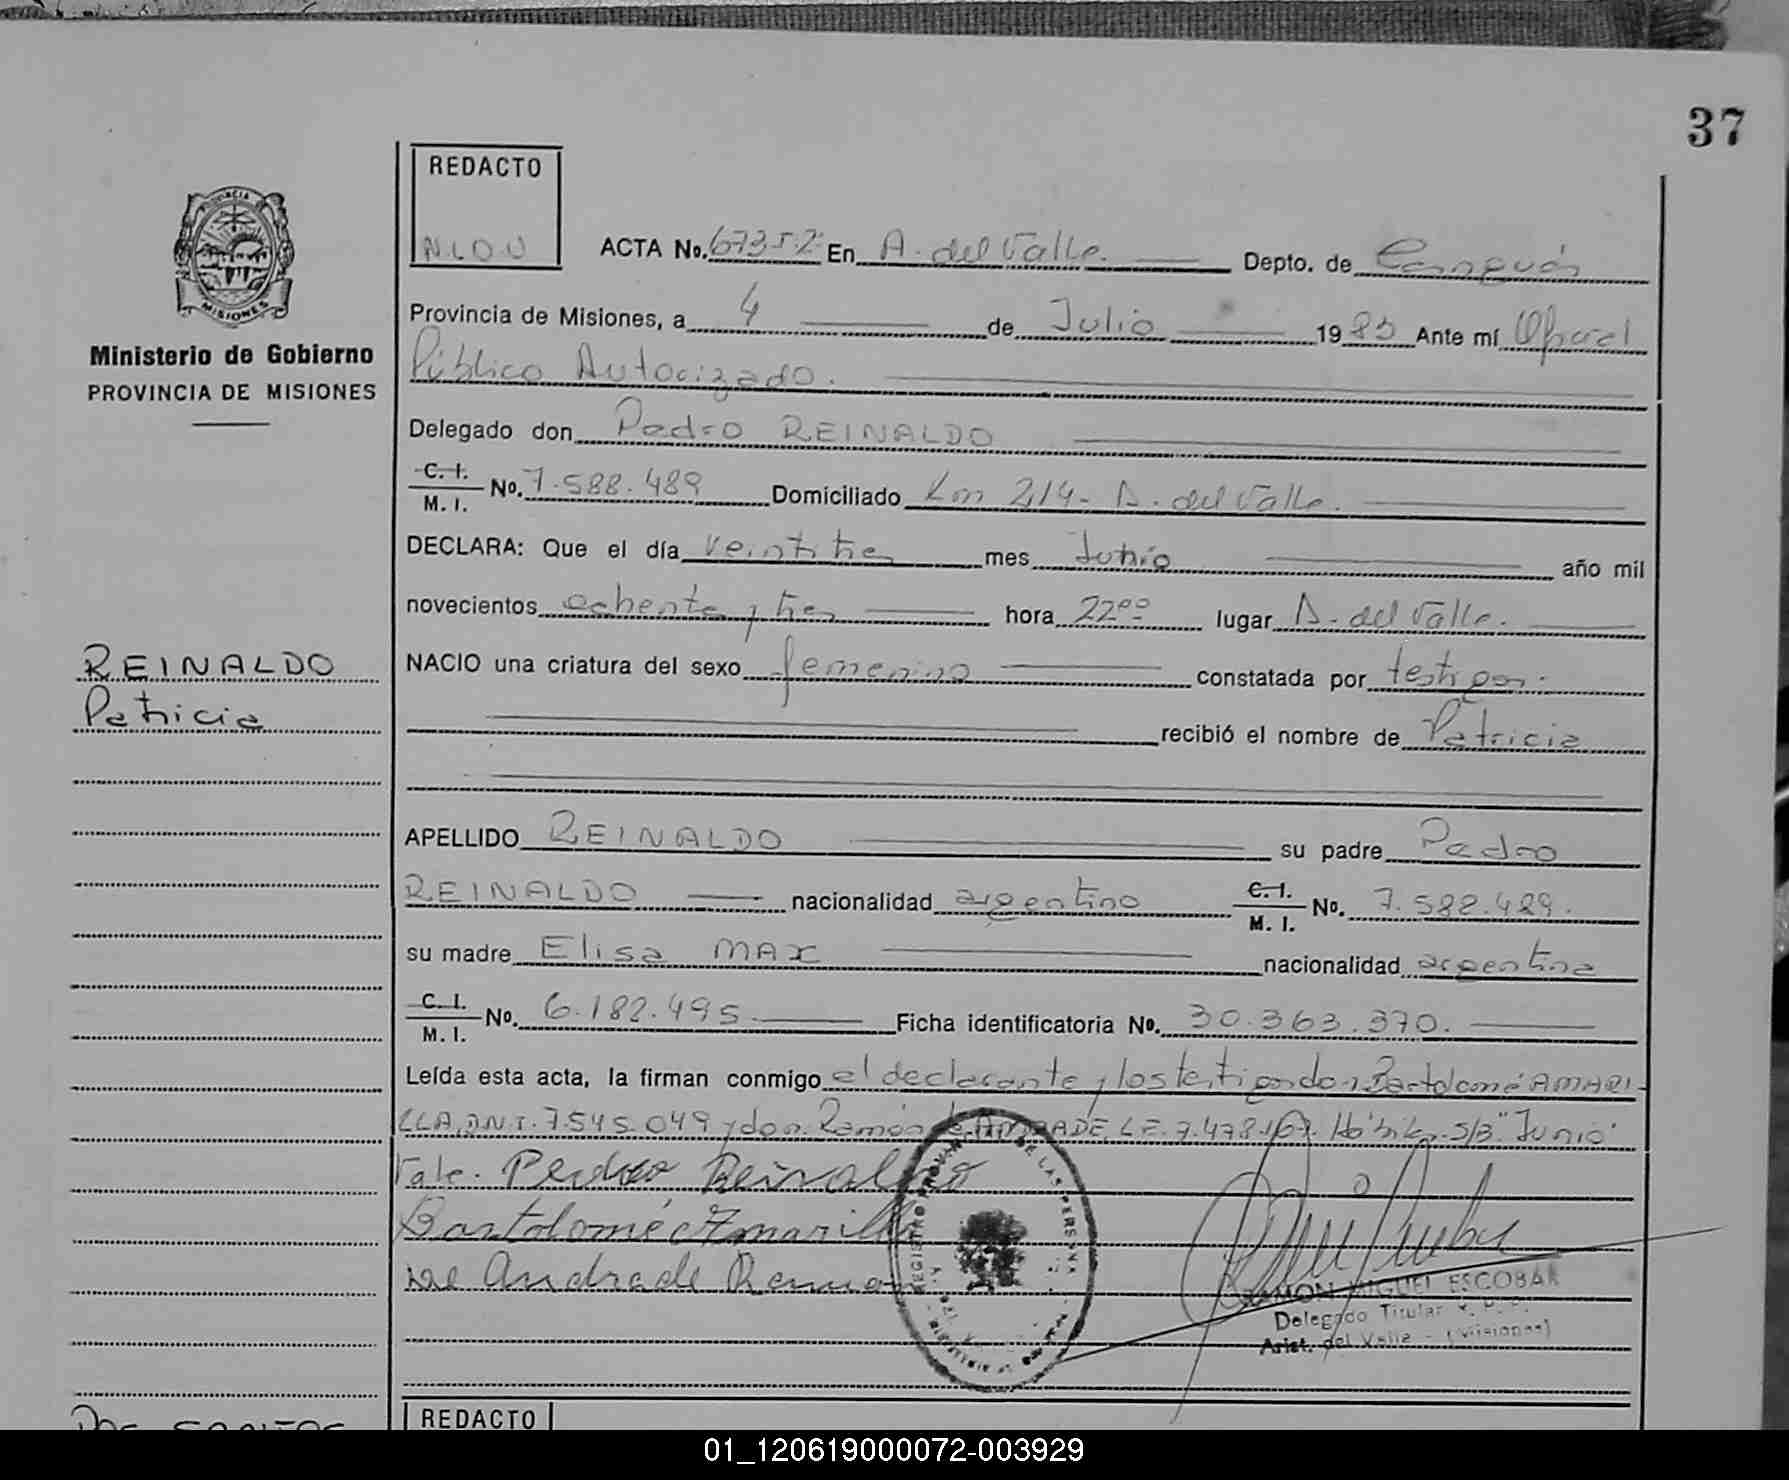 37
REDACTO
N.L.O.U
ACTA No. 67352 En A. del Valle. Depto. de Cainguás
PROVINCIA DE
MISIONES
Ministerio de Gobierno
PROVINCIA DE MISIONES
Provincia de Misiones, a 4 de Julio 1983 Ante mí Oficial
Público Autorizado.
Delegado don Pedro REINALDO
C. I.
M. I. No. 7.588.489 Domiciliado Km 214- A. del Valle.
DECLARA: Que el día veintitres mes Junio año mil
novecientos ochenta y tres hora 22°° lugar A. del Valle.
REINALDO
Patricia
NACIO una criatura del sexo femenino constatada por testigos.
recibió el nombre de Patricia
APELLIDO REINALDO su padre Pedro
REINALDO nacionalidad argentino C. I.
M. I. No. 7.588.489.
su madre Elisa MAX nacionalidad argentina
C. I.
M. I. No. 6.182.495. Ficha identificatoria No. 30.363.370.
Leída esta acta, la firman conmigo el declarante y los testigos don Bartolomé AMARI-
LLA, DNI. 7.545.049 y don Ramón de ANDRADE, L.E. 7.478.167. Hábiles. S/B "Junio"
Vale. Pedro Reinaldo
Bartolomé Amarilla
De Andrade Ramon
REGISTRO DE LAS PERSONAS
RAMON MIGUEL ESCOBAR
Delegado Titular R. P. P.
Arist. del Valle - (Misiones)
DOS SANTOS
REDACTO
01_120619000072-003929